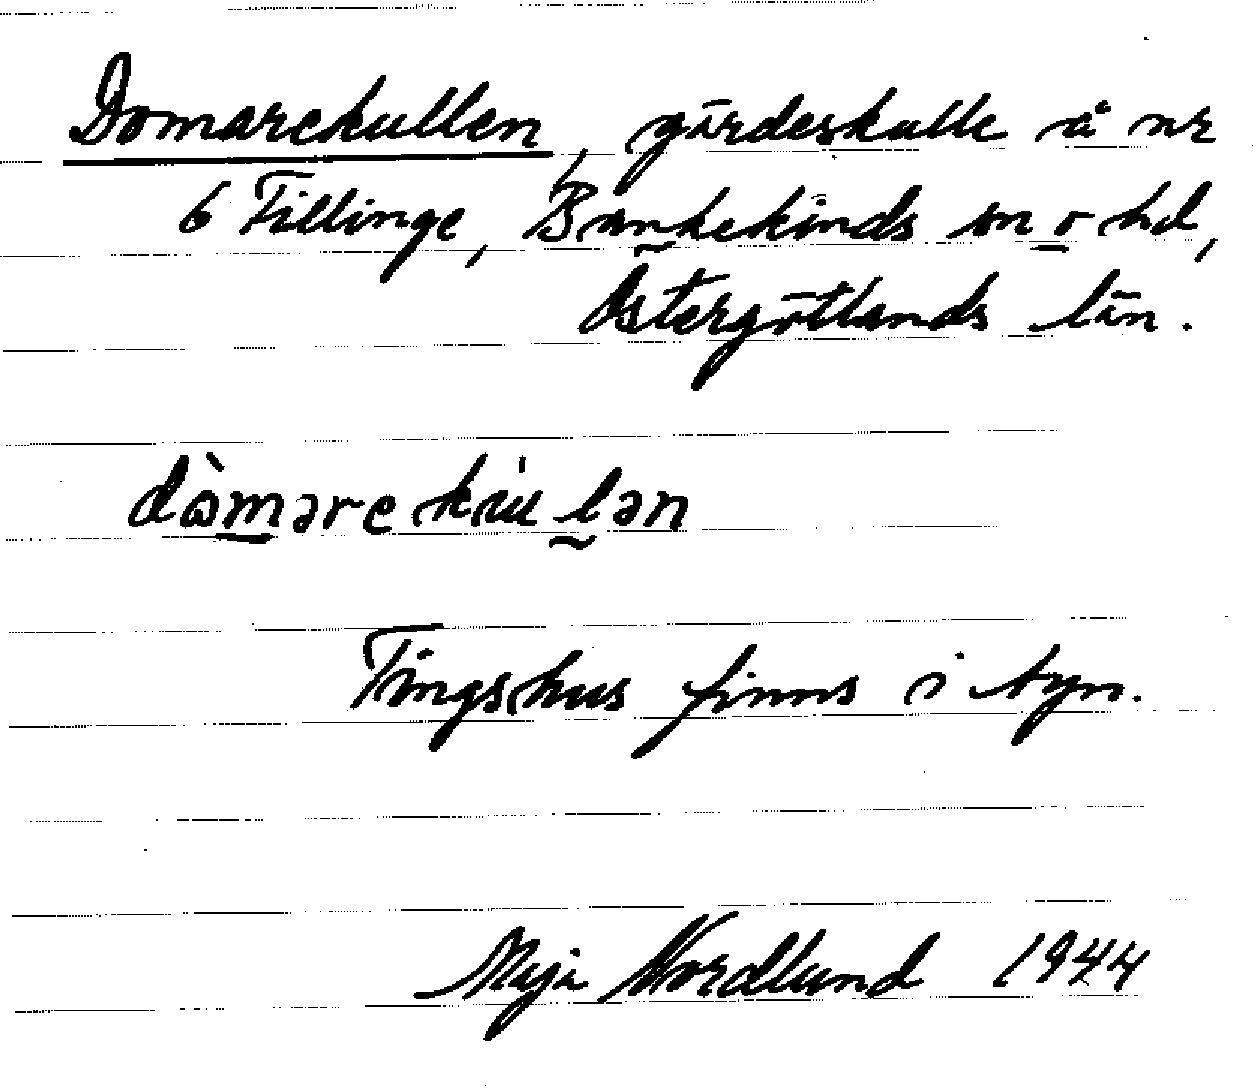 Domarekullen, gärdeskulle å nr
6 Fillinge, Bankekinds sn o hd,
Östergötlands län.
Tingshus finns i byn.
Maja Nordlund 1944